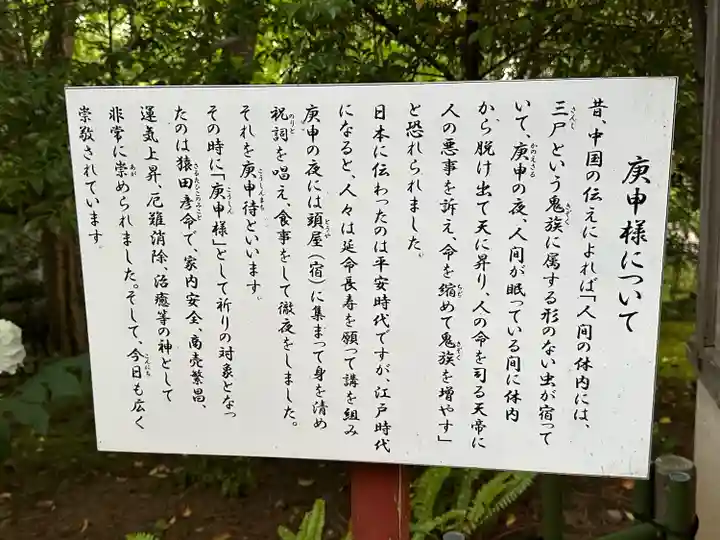 庚申様について
昔、中国の伝えによれば「人間の体内には、
三尸という鬼族に属する形のない虫が宿って
いて、庚申の夜、人間が眠っている間に体内
から脱け出て天に昇り、人の命を司る天帝に
人の悪事を訴え、命を縮めて鬼族を増やす」
と恐れられました。
日本に伝わったのは平安時代ですが、江戸時代
になると、人々は延命長寿を願って講を組み
庚申の夜には頭屋（宿）に集まって身を清め
祝詞を唱え、食事をして徹夜をしました。
それを庚申待といいます。
その時に「庚申様」として祈りの対象となっ
たのは猿田彦命で、家内安全、商売繁昌、
運気上昇、厄難消除、治癒等の神として
非常に崇められました。そして、今日も広く
崇敬されています。